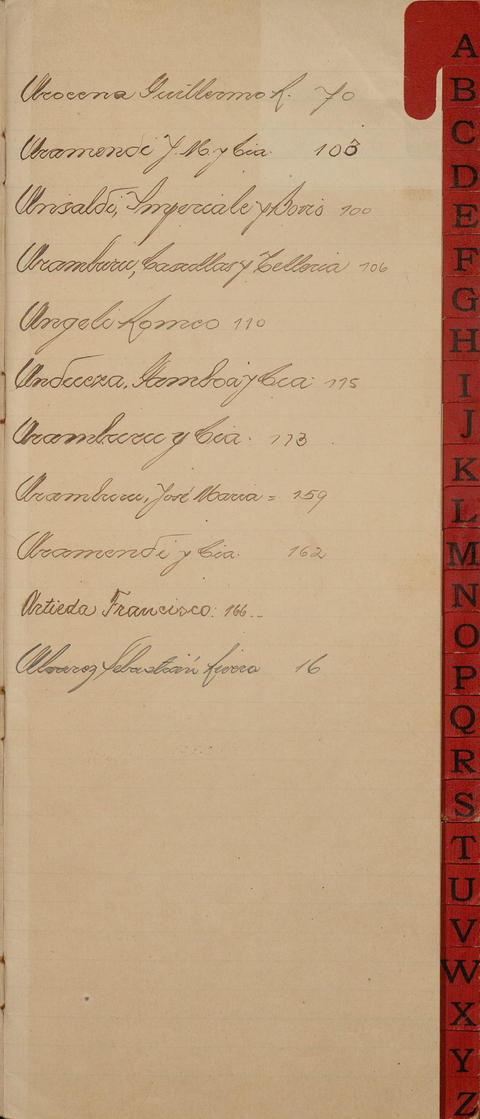 Arocena Guillermo R. 70
Aramendi J. M. y Cia. 103
Ansaldi, Imperiale y Bovio 100
Aramburu, Casellas y Telleria 106
Angeli Romeo 110
Andueza, Gamboa y Cia. 115
Aramburu y Cia. 113
Aramburu, José Maria = 159
Aramendi y Cia. 162
Artieda Francisco. 166..
Alvarez Sebastián Rivera 16
A
B
C
D
E
F
G
H
I
J
K
L
M
N
O
P
Q
R
S
T
U
V
W
X
Y
Z